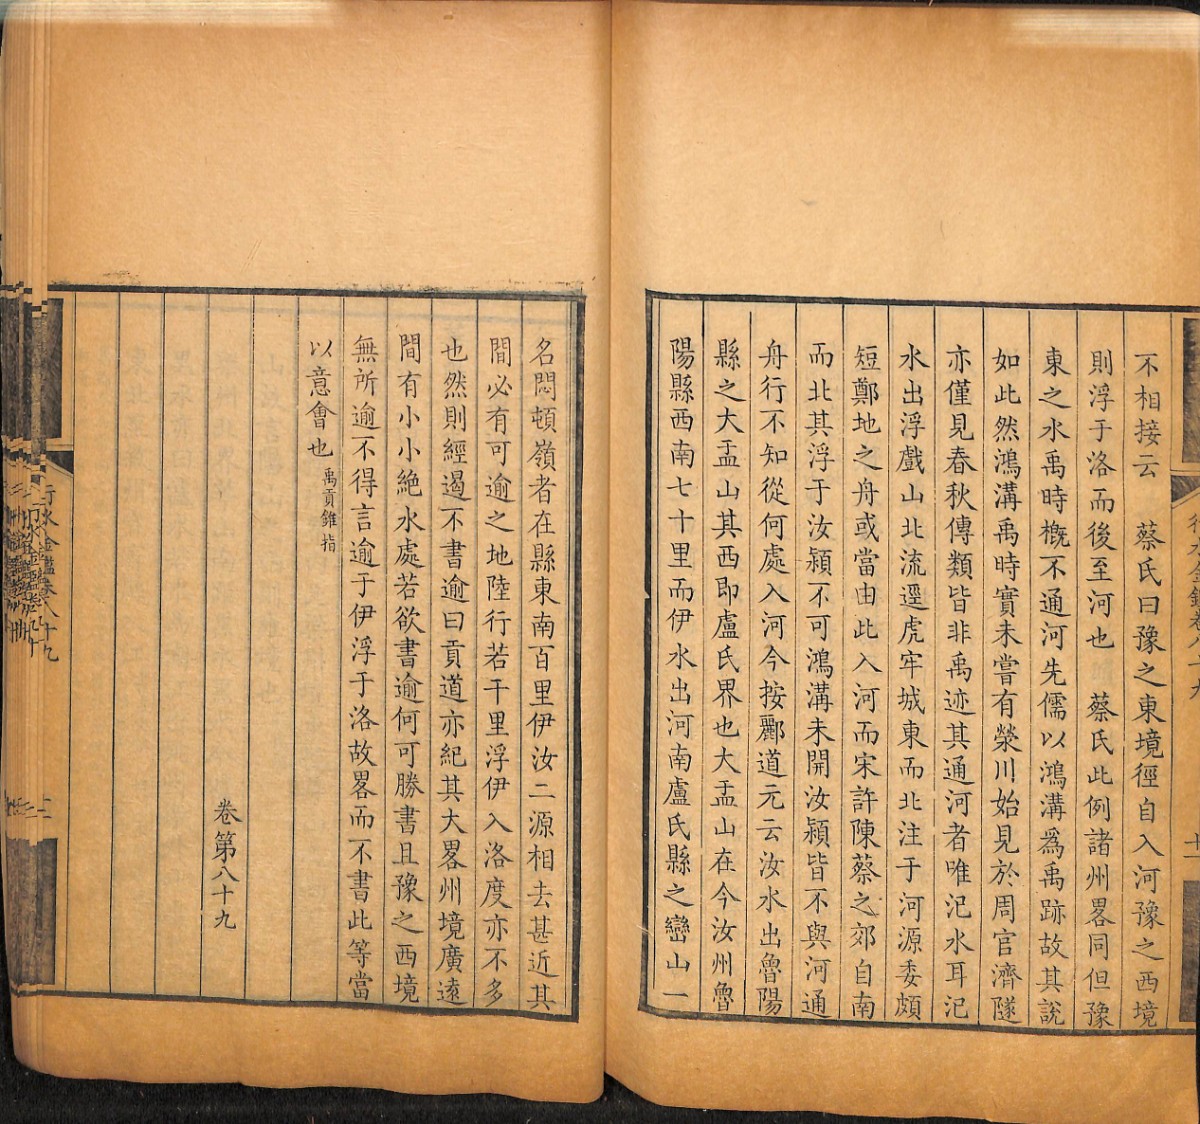 不相接云　蔡氏曰豫之東境徑自入河豫之西境
則浮于洛而後至河也　蔡氏此例諸州畧同但豫
東之水禹時概不通河先儒以鴻溝爲禹跡故其說
如此然鴻溝禹時實未嘗有滎川始見於周官濟隧
亦僅見春秋傳類皆非禹迹其通河者唯汜水耳汜
水出浮戲山北流逕虎牢城東而北注于河源委頗
短鄭地之舟或當由此入河而宋許陳蔡之郊自南
而北其浮于汝潁不可鴻溝未開汝潁皆不與河通
舟行不知從何處入河今按酈道元云汝水出魯陽
縣之大盂山其西即盧氏界也大盂山在今汝州魯
陽縣西南七十里而伊水出河南盧氏縣之巒山一
名悶頓嶺者在縣東南百里伊汝二源相去甚近其
間必有可逾之地陸行若干里浮伊入洛度亦不多
也然則經遏不書逾曰貢道亦紀其大畧州境廣遠
間有小小絶水處若欲書逾何可勝書且豫之西境
無所逾不得言逾于伊浮于洛故畧而不書此等當
以意會也 禹貢錐指
卷第八十九